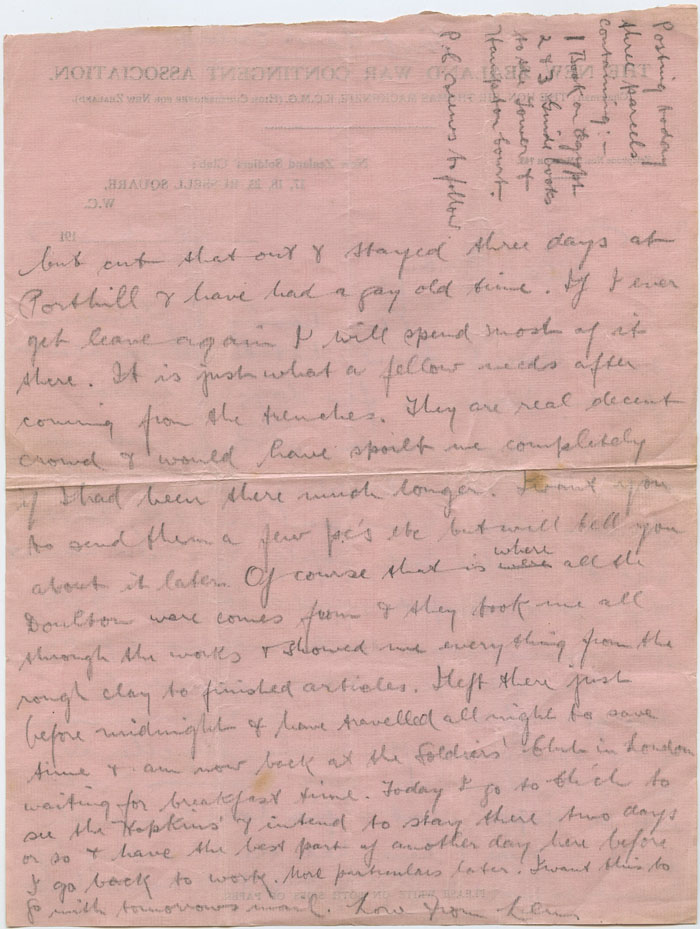 Posting today
three parcels
containing:-
1 Book on Egypt
2 & 3 Guide books
to the Tower &
Hampton Court.
P.C. views to follow
THE NEW ZEALAND WAR CONTINGENT ASSOCIATION.
New Zealand Soldiers' Club:
17, 18, 25 RUSSELL SQUARE,
W.C.
191
but cut that out & stayed three days at
Porthill & have had a gay old time. If I ever
get leave again I will spend most of it
there. It is just what a fellow needs after
coming from the trenches. They are real decent
crowd & would have spoilt me completely
if I had been there much longer. I want you
to send them a few pc's etc but will tell you
about it later. Of course that is where all the
Doulton ware comes from & they took me all
through the works & showed me everything from the
rough clay to finished articles. I left there just
before midnight & have travelled all night to save
time & am now back at the Soldiers' Club in London
waiting for breakfast time. Today I go to Ch'ch to
see the Hopkins' & intend to stay there two days
or so & have the best part of another day here before
I go back to work. More particulars later. I want this to
go with tomorrows mail. Love from
PLEASE WRITE ON BOTH SIDES OF PAPER